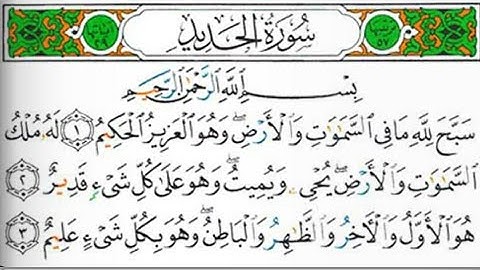 سُورَةُ الحَدِيدِ
بِسْمِ ٱللَّهِ ٱلرَّحْمَٰنِ ٱلرَّحِيمِ
سَبَّحَ لِلَّهِ مَا فِي ٱلسَّمَٰوَٰتِ وَٱلْأَرْضِ ۖ وَهُوَ ٱلْعَزِيزُ ٱلْحَكِيمُ ١ لَهُۥ مُلْكُ
ٱلسَّمَٰوَٰتِ وَٱلْأَرْضِ ۖ يُحْىِۦ وَيُمِيتُ ۖ وَهُوَ عَلَىٰ كُلِّ شَىْءٍ قَدِيرٌ ٢
هُوَ ٱلْأَوَّلُ وَٱلْأَخِرُ وَٱلظَّٰهِرُ وَٱلْبَاطِنُ ۖ وَهُوَ بِكُلِّ شَىْءٍ عَلِيمٌ ٣